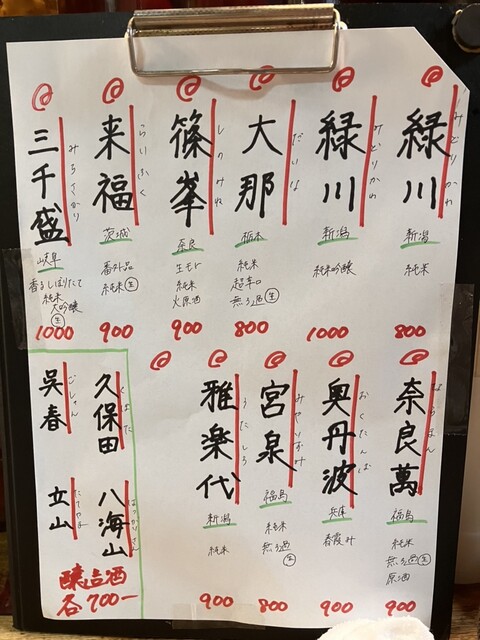 緑川
みどりかわ
新潟
純米
800
緑川
みどりかわ
新潟
純米吟醸
1000
大那
だいな
栃木
純米
超辛口
無ろ過生
900
篠峯
しのみね
奈良
生もと
純米
火原酒
900
来福
らいふく
茨城
番外品
純米生
900
三千盛
みちさかり
岐阜
香るしぼりたて
純米
大吟醸
生
1000
奈良萬
ならまん
福島
純米
無ろ過生
原酒
900
奥丹波
おくたんば
兵庫
春霞み
900
宮泉
みやいずみ
福島
純米
無ろ過
生
800
雅楽代
うたしろ
新潟
純米
900
久保田
くぼた
八海山
はっかいさん
呉春
ごしゅん
立山
たてやま
醸造酒
各700ー